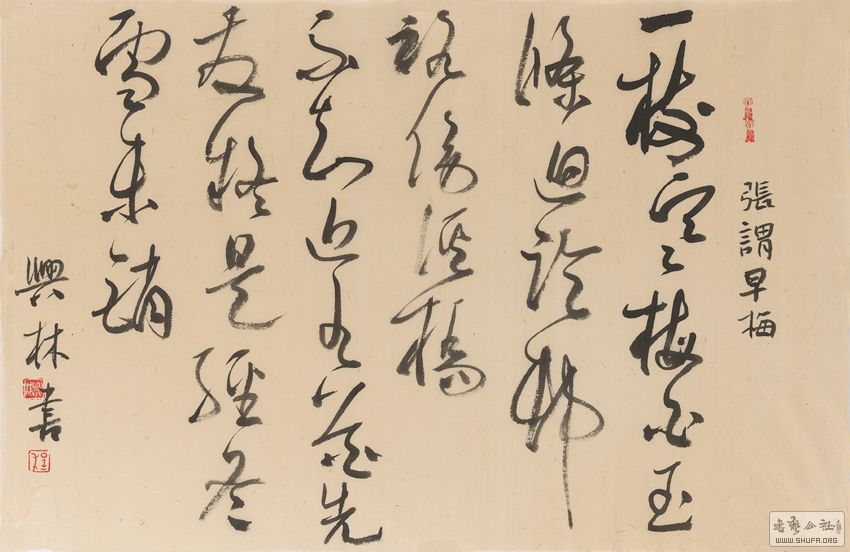 張謂早梅
一樹寒梅白玉
條迥臨邨
路傍溪橋
不知近水花先
發疑是經冬
雪未銷
興林書
書藝公社
WWW.SHUFA.ORG